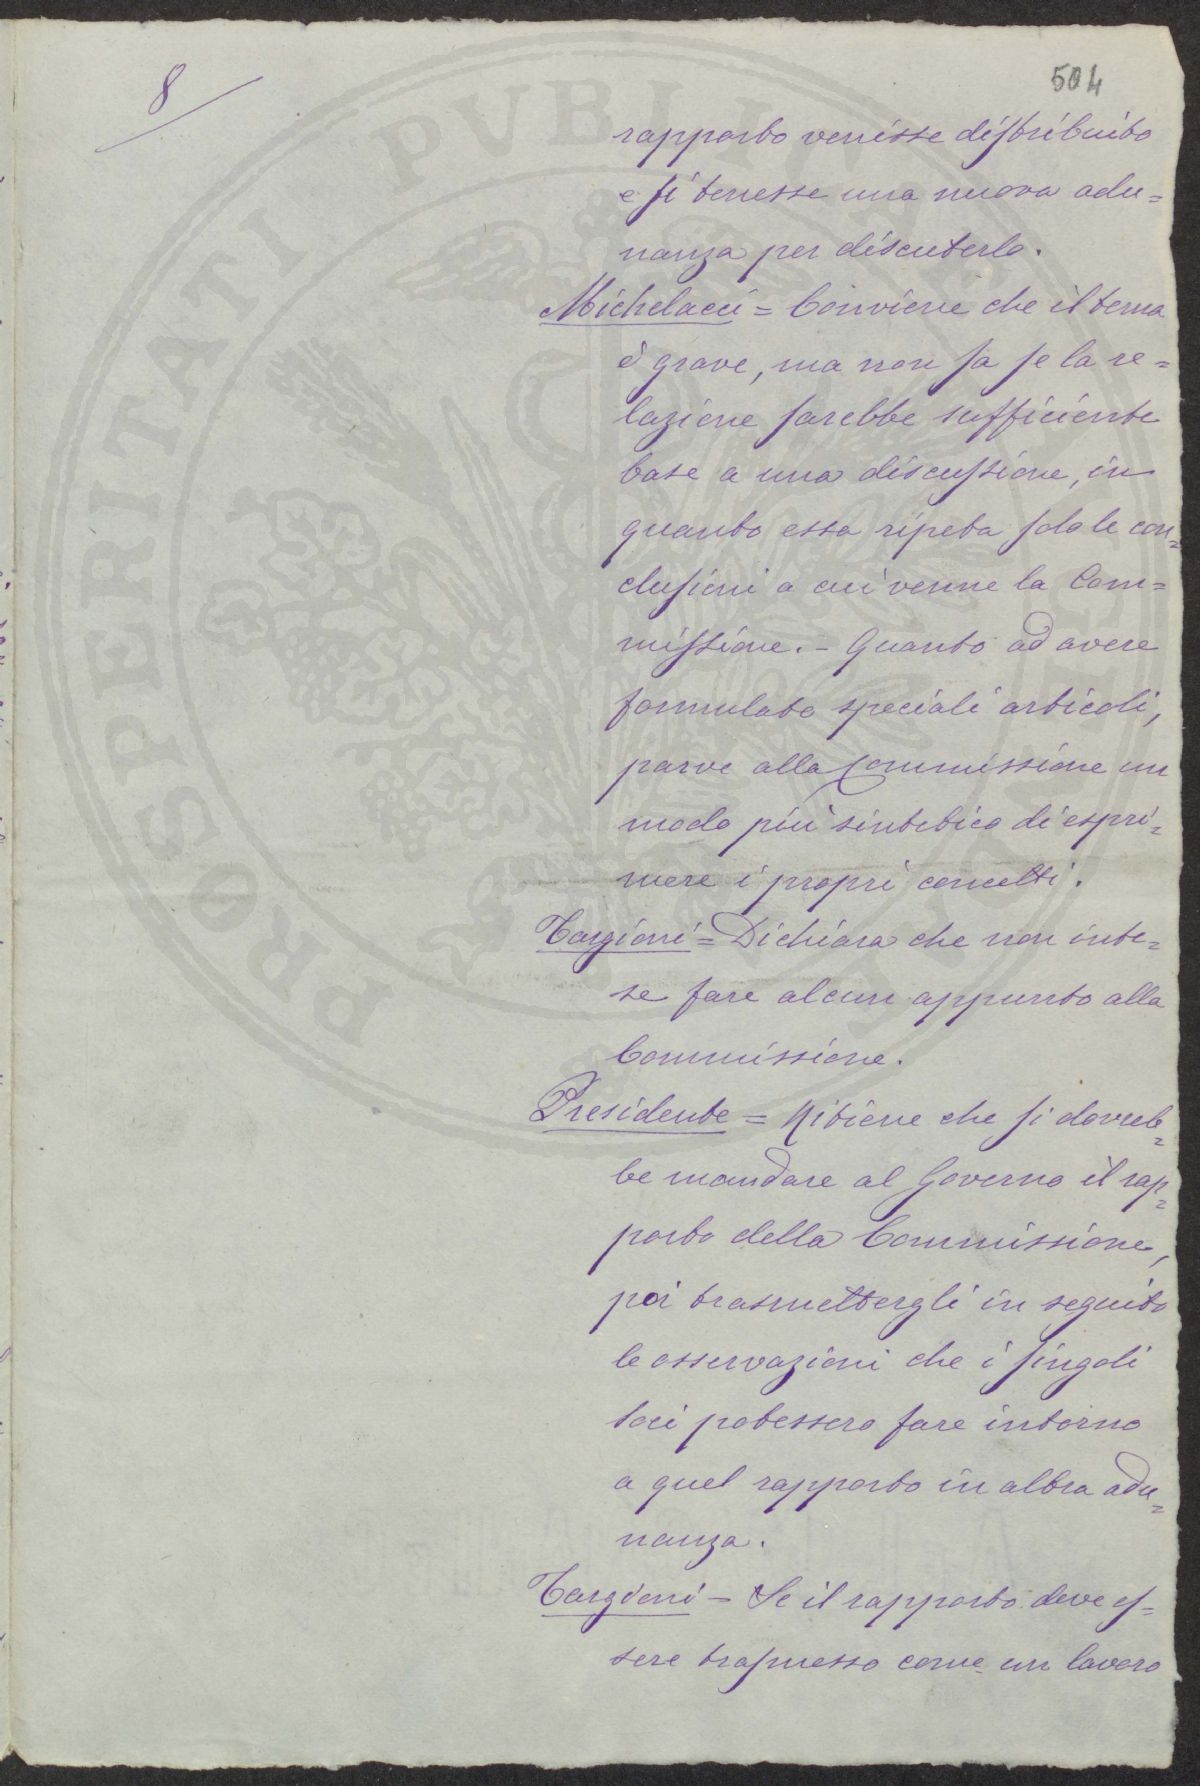 8
504
rapporto venisse distribuito
e si tenesse una nuova adu=
nanza per discuterlo.
Michelacci = Conviene che il tema
è grave, ma non sa se la re=
lazione sarebbe sufficiente
base a una discussione, in
quanto essa ripeta solo le con=
clusioni a cui venne la Com=
missione. - Quanto ad avere
formulato speciali articoli,
parve alla Commissione un
modo più sintetico di espri=
mere i propri concetti.
Targioni = Dichiara che non inte=
se fare alcun appunto alla
Commissione.
Presidente = Ritiene che si dovreb=
be mandare al Governo il rap=
porto della Commissione,
poi trasmettergli in seguito
le osservazioni che i singoli
soci potessero fare intorno
a quel rapporto in altra adu=
nanza.
Targioni = Se il rapporto deve es=
sere trasmesso come un lavoro
PROSPERITATI PVBLICAE